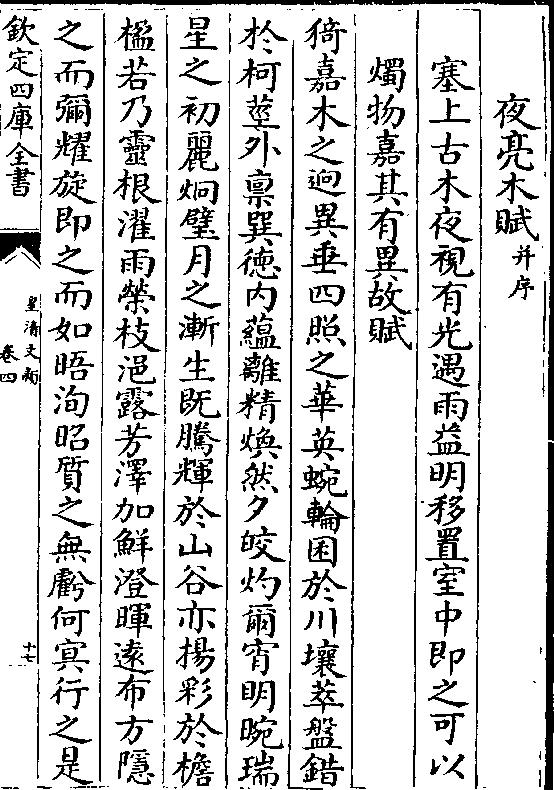 夜亮木賦并序
塞上古木夜視有光遇雨益明移置室中即之可以
燭物嘉其有異故賦
猗嘉木之迥異垂四照之華英蜿輪囷於川壤萃盤錯
於柯莖外稟巽德内蘊離精煥然夕皎灼爾宵明晼瑞
星之初麗炯璧月之漸生既騰輝於山谷亦揚彩於檐
楹若乃靈根濯雨榮枝浥露芳澤加鮮澄暉遠布方隱
之而彌耀旋即之而如晤洵昭質之無虧何㝠行之是
欽定四庫全書
皇清文穎
卷四
十七